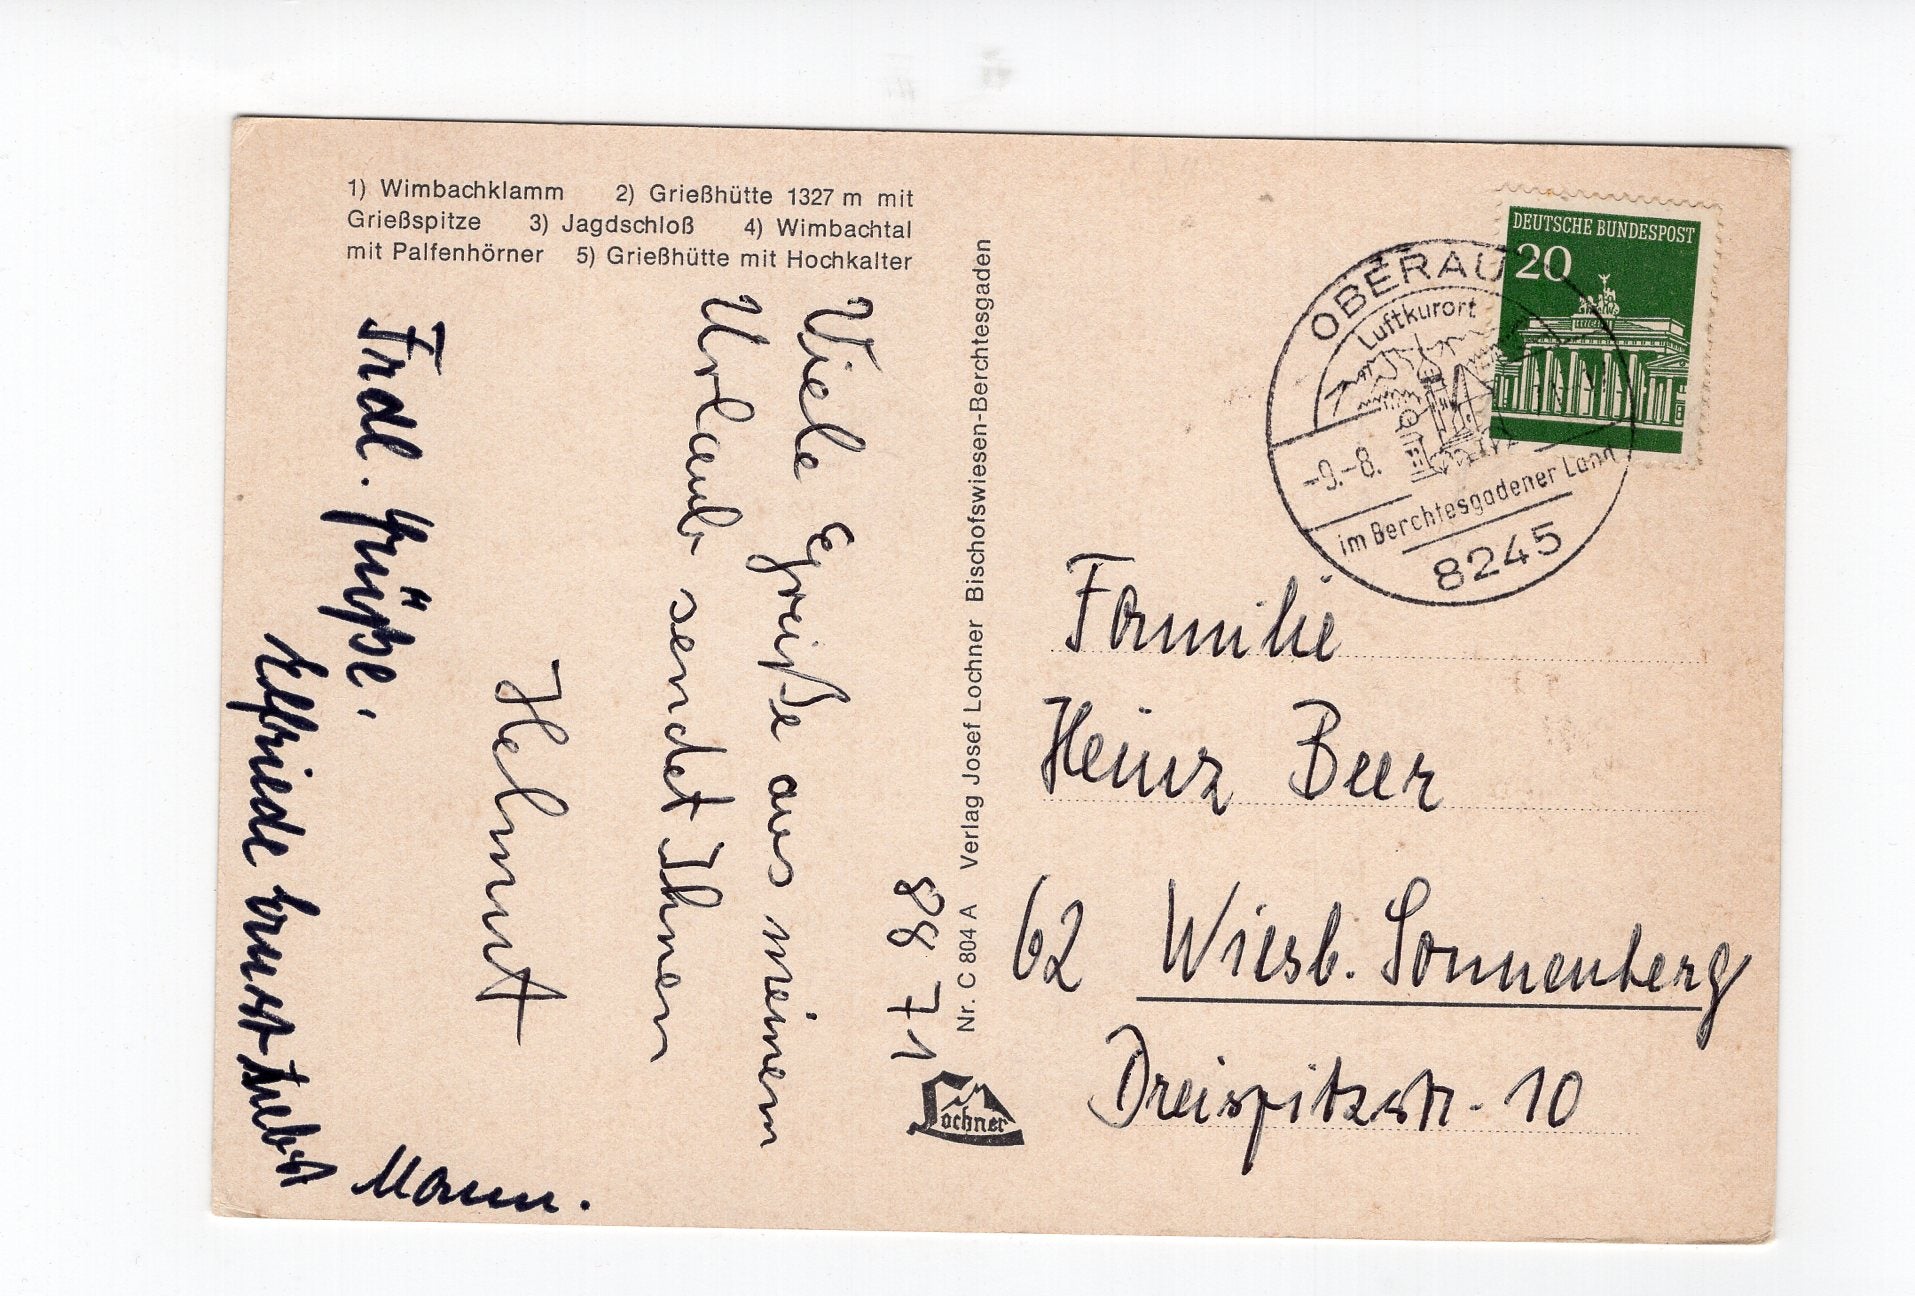 1) Wimbachklamm 2) Grießhütte 1327 m mit
Grießspitze 3) Jagdschloß 4) Wimbachtal
mit Palfenhörner 5) Grießhütte mit Hochkalter
88 71
Viele Grüße aus meinem
Urlaub sendet Ihnen
Helmut
Frdl. Grüße.
Elfriede
Mann.
Nr. C 804 A Verlag Josef Lochner Bischofswiesen-Berchtesgaden
Lochner
DEUTSCHE BUNDESPOST
20
OBERAU
Luftkurort
-9.-8.
im Berchtesgadener Land
8245
Familie
Heinz Beer
62 Wiesb. Sonnenberg
Dreispitzstr. 10